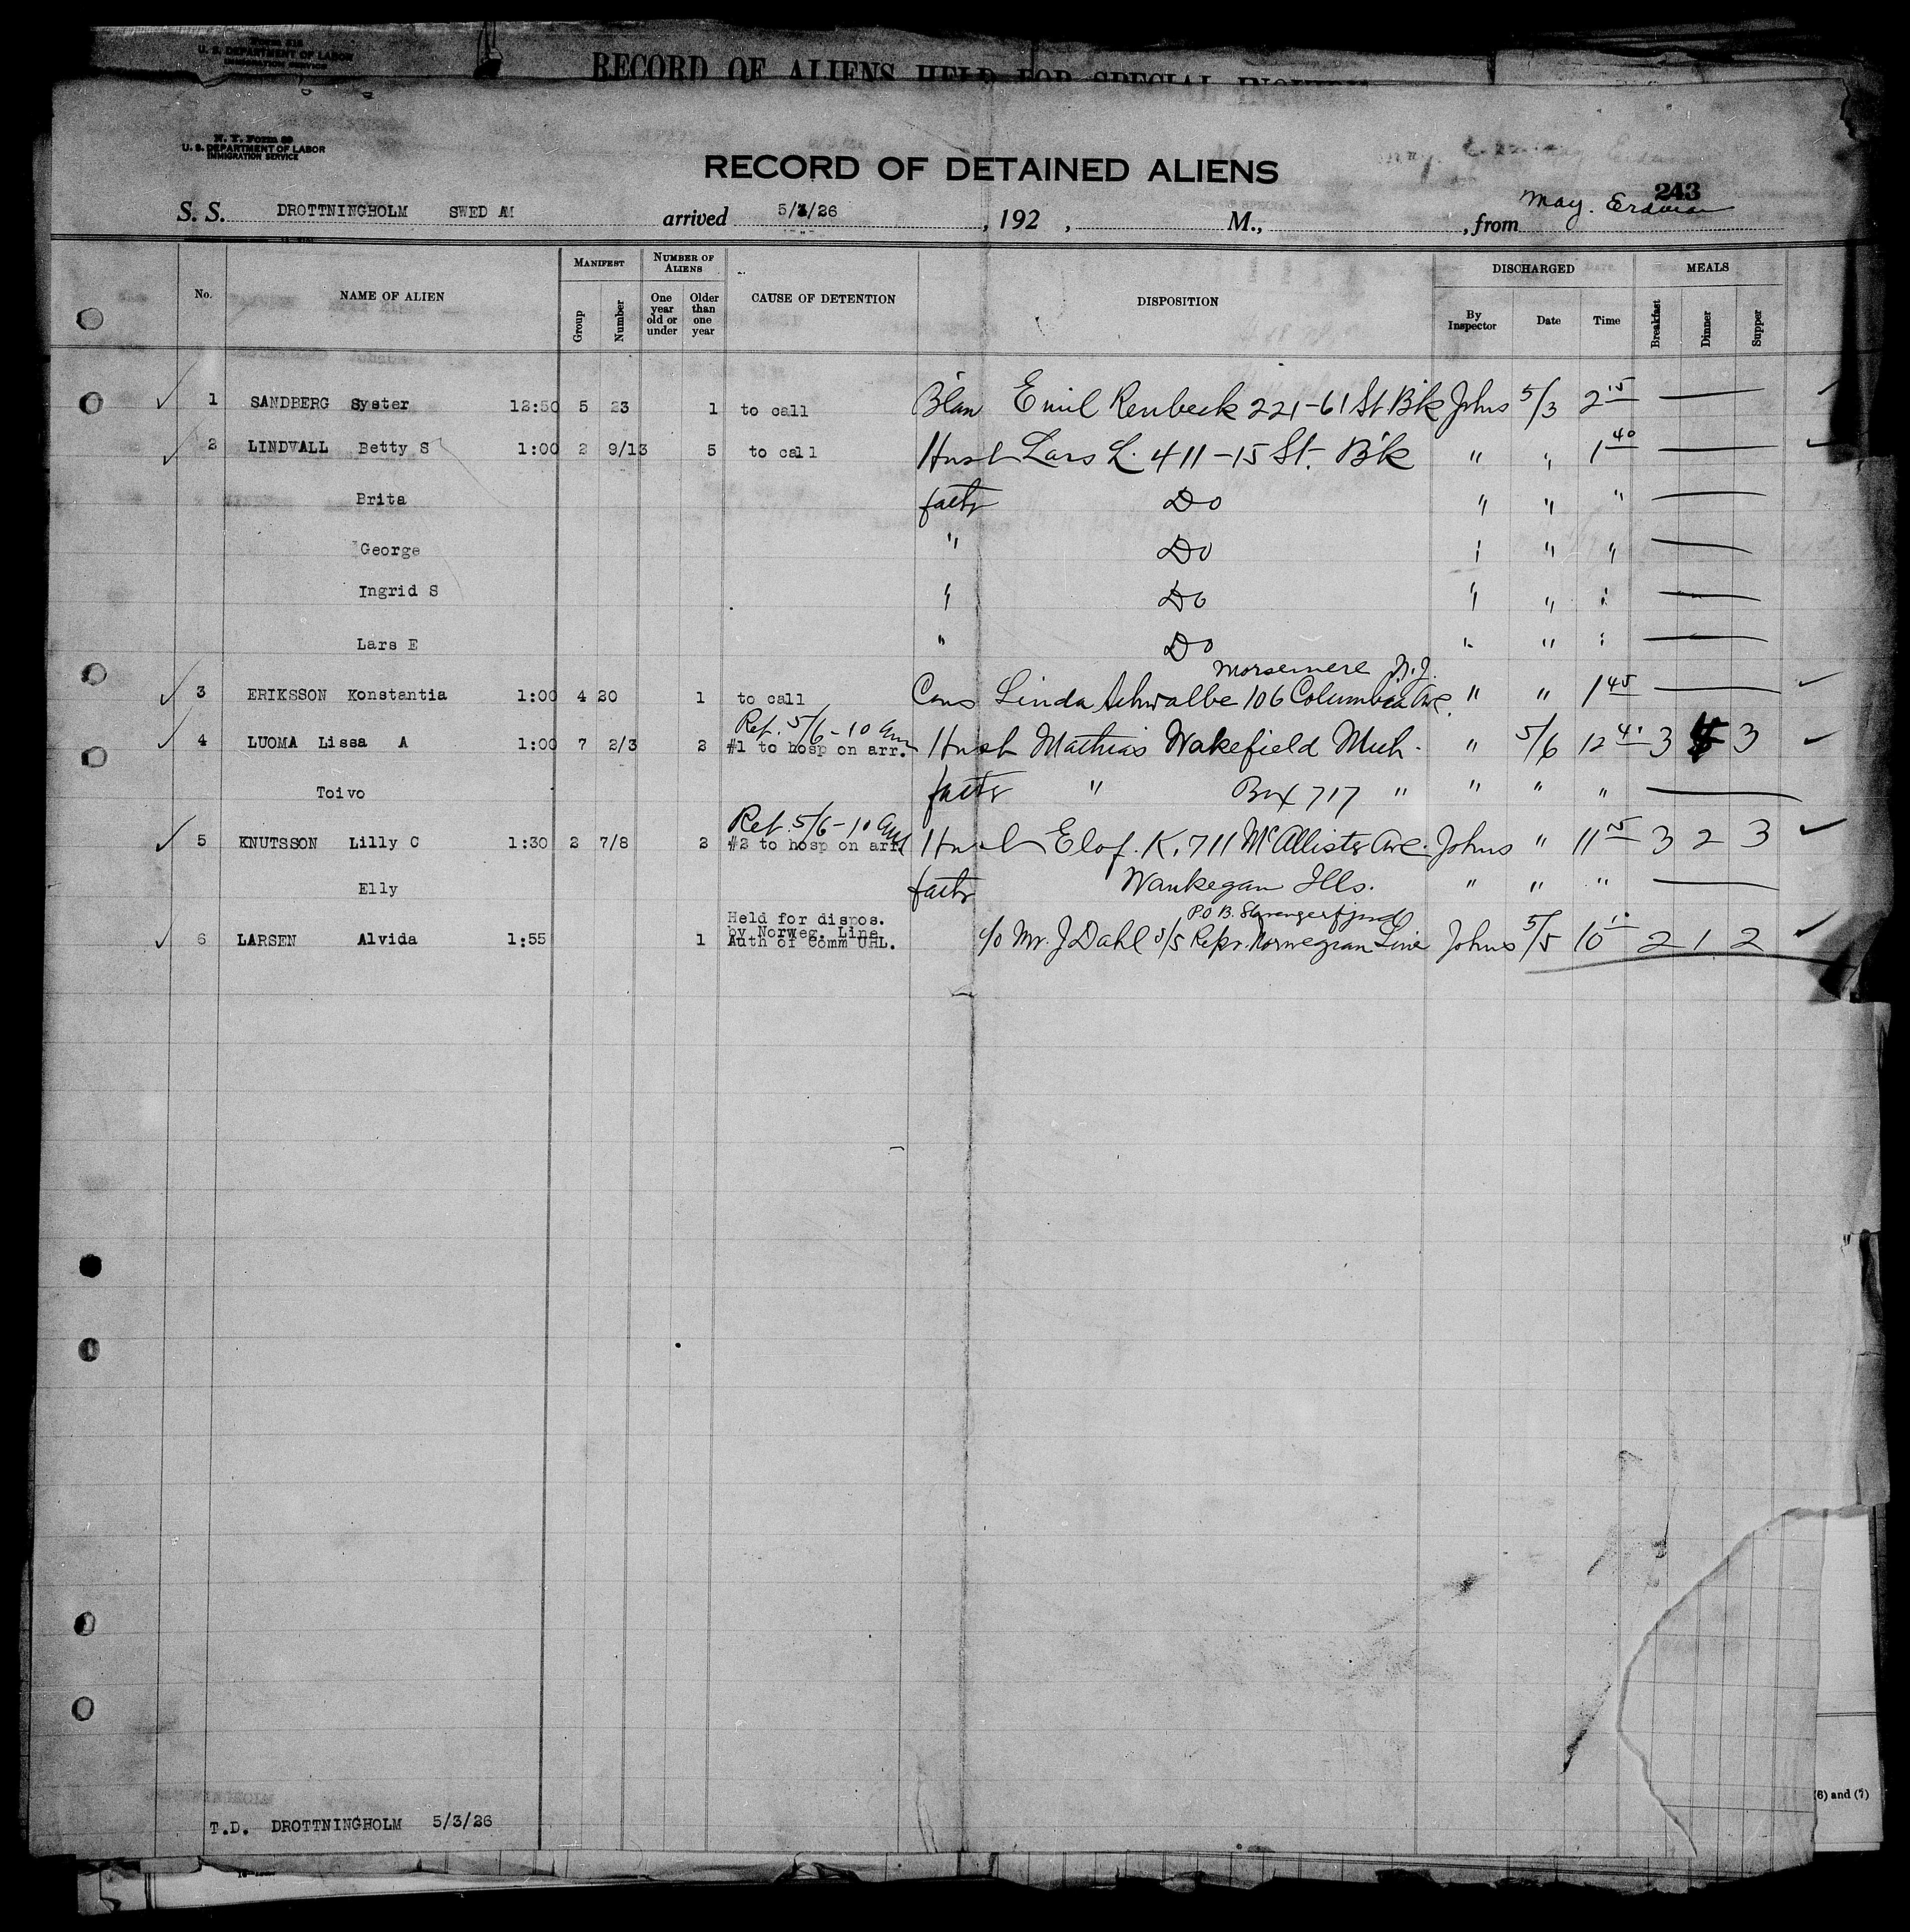 Form 518
U. S. DEPARTMENT OF LABOR
IMMIGRATION SERVICE
RECORD OF ALIENS HELD FOR SPECIAL INQUIRY
N. Y. Form 99
U. S. DEPARTMENT OF LABOR
IMMIGRATION SERVICE
RECORD OF DETAINED ALIENS
243
S. S. DROTTNINGHOLM SWED AM arrived 5/3/26, 192 , M., , from May. Erdman
No. NAME OF ALIEN MANIFEST Group Number NUMBER OF ALIENS One year old or under Older than one year CAUSE OF DETENTION DISPOSITION DISCHARGED By Inspector Date Time MEALS Breakfast Dinner Supper
1 SANDBERG Syster 12:50 5 23 1 to call Emil Renbeck 221-61 St Bk Johns 5/3 2 15
2 LINDVALL Betty S 1:00 2 9/13 5 to call Husb Lars L. 411-15 St. Bk " " 1 40
Brita fathr Do " " "
George " Do " " "
Ingrid S " Do " " "
Lars E " Do " " "
Morsemere N.J.
3 ERIKSSON Konstantia 1:00 4 20 1 to call Cous Linda Schwalbe 106 Columbia Ave. " " 1 45
Ret. 5/6 - 10 am
4 LUOMA Lissa A 1:00 7 2/3 2 #1 to hosp on arr. Husb Mathias Wakefield Mich. " 5/6 12 41 3 3
Toivo fathr " Box 717 " " " "
Ret. 5/6 - 10 am
5 KNUTSSON Lilly C 1:30 2 7/8 2 #2 to hosp on arr Husb Elof. K. 711 McAllister Ave. Johns " 11 15 3 2 3
Elly fathr Waukegan Ills. " " "
Held for dispos.
P.O B. Stavangerfjord
by Norweg. Line
6 LARSEN Alvida 1:55 1 Auth of Comm UHL. c/o Mr. J Dahl Repr. Norwegian Line Johns 5/5 10 10 2 1 2
(6) and (7)
T.D. DROTTNINGHOLM 5/3/26